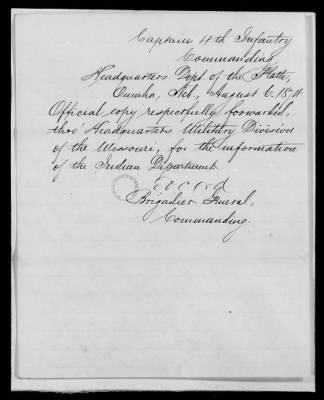 Captain 4th Infantry
Commanding.
Headquarters Dept of the Platte,
Omaha, Neb, August 6, 18
Official copy respectfully forwarded,
thro' Headquarters Military Division
of the Missouri, for the information
of the Indian Department
Brigadier General,
Commanding.